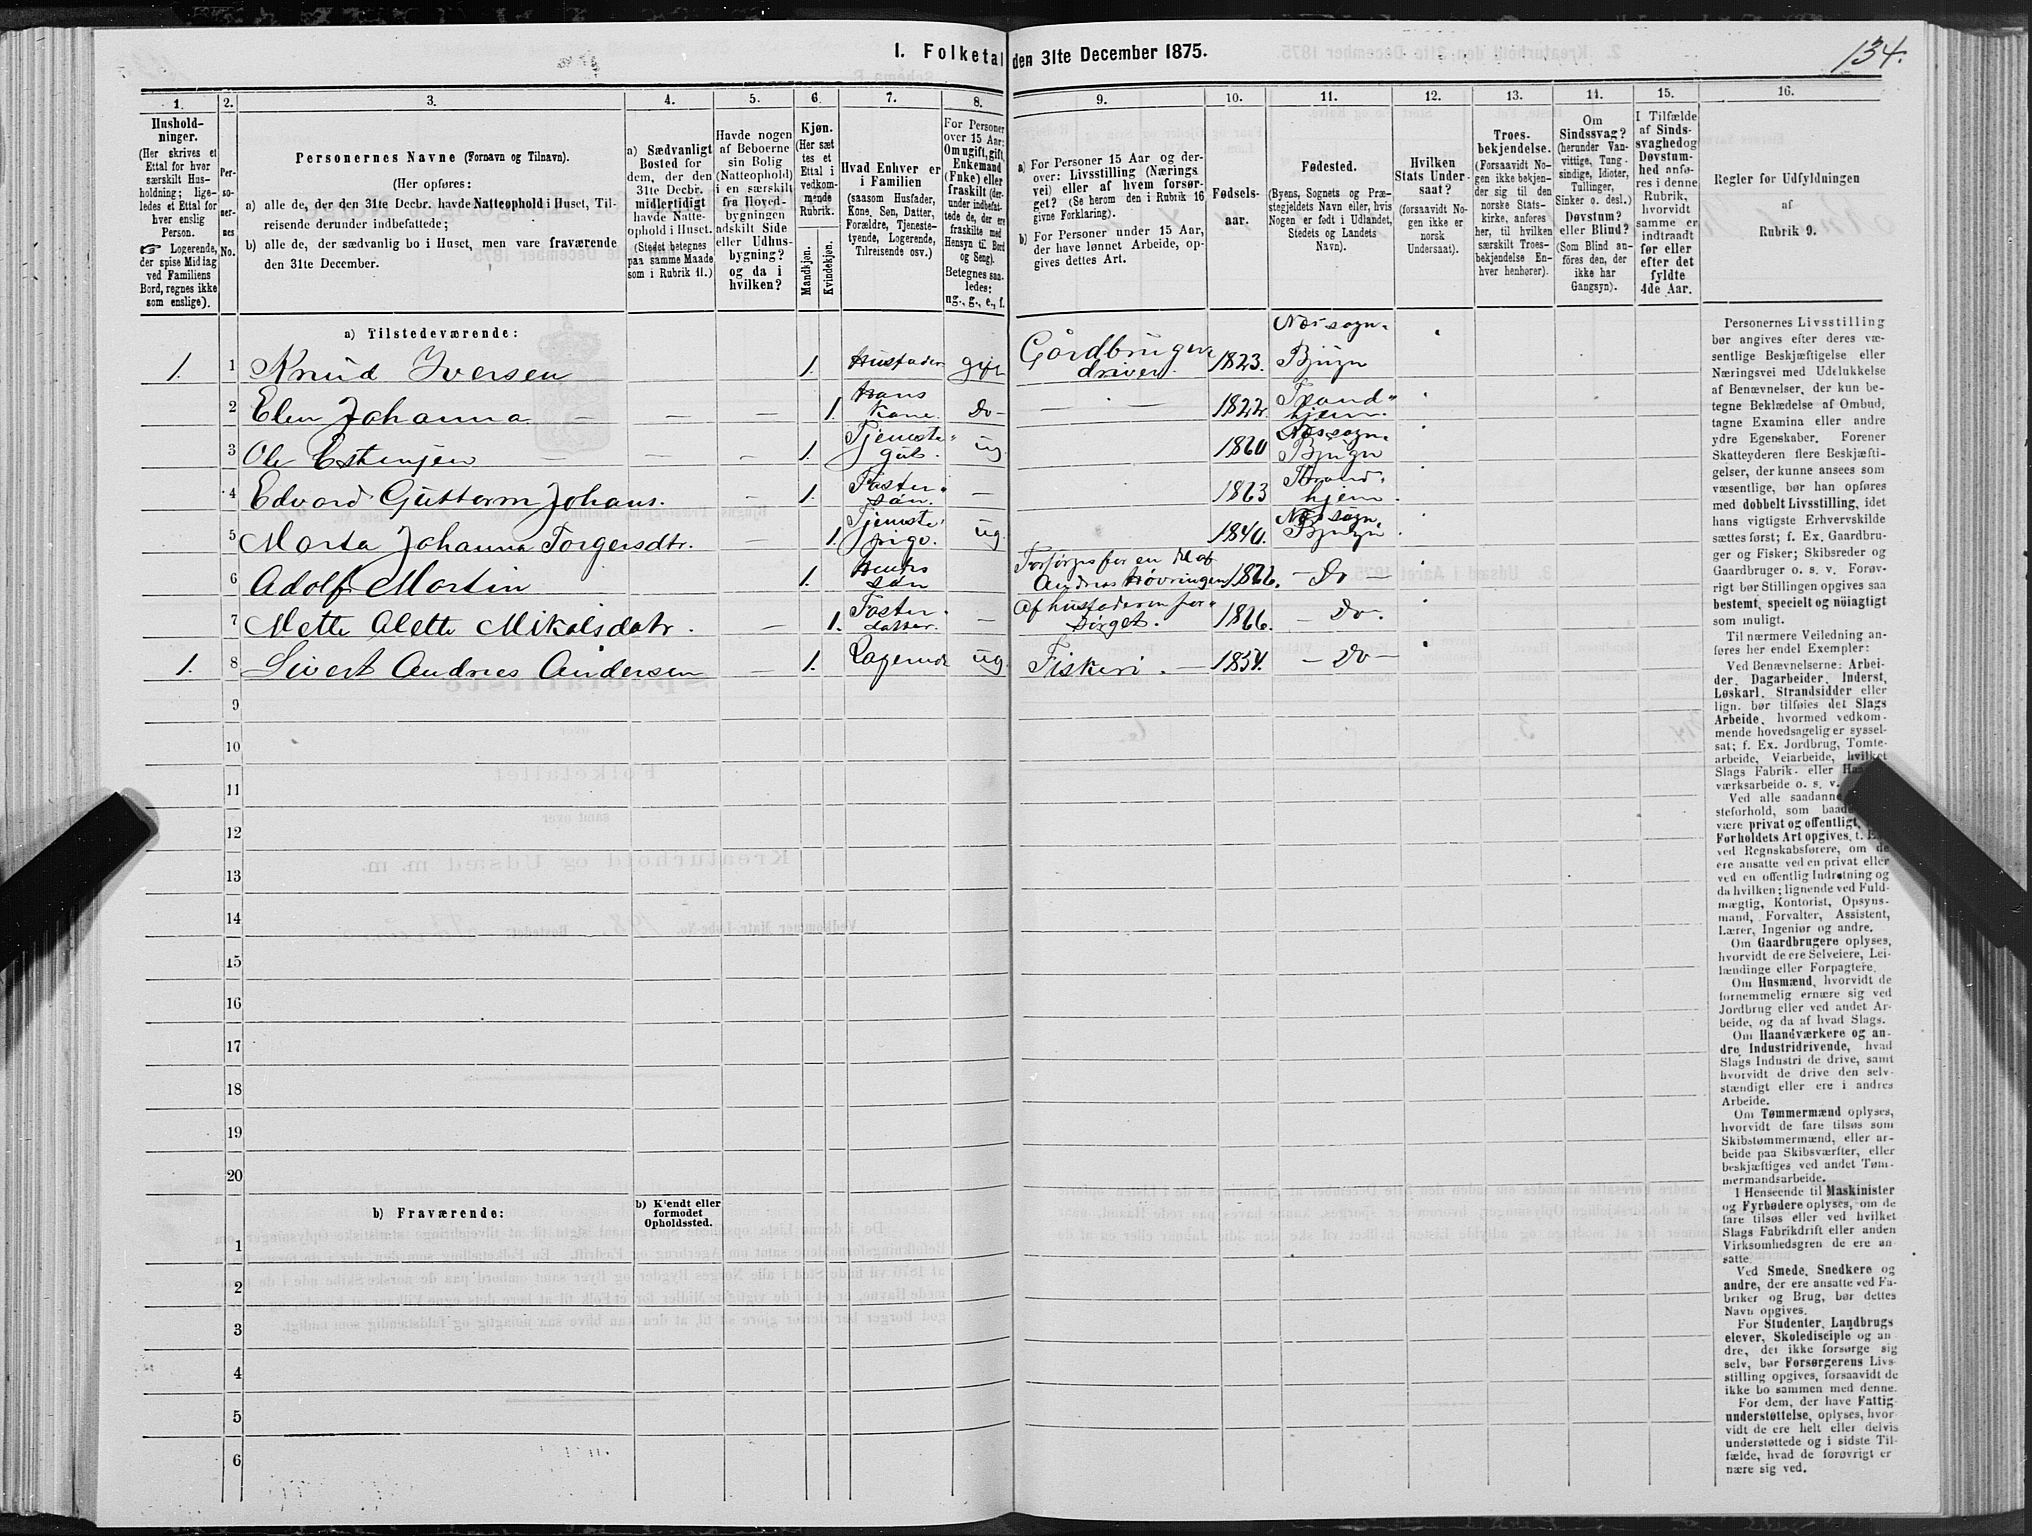 I. Folketal den 31te December 1875.
134.
1.
2.
3.
4.
5.
6.
7.
8.
9.
10.
11.
12.
13.
14.
15.
16.
Hushold-
ninger.
(Her skrives et
Ettal for hver
særskilt Hus-
holdning; lige-
ledes et Ettal for
hver enslig
Person.
☞ Logerende,
der spise Middag
ved Familiens
Bord, regnes ikke
som enslige).
Per-
so-
ner-
nes
No.
Personernes Navne (Fornavn og Tilnavn).
(Her opføres:
a) alle de, der den 31te Decbr. havde Natteophold i Huset, Til-
reisende derunder indbefattede;
b) alle de, der sædvanlig bo i Huset, men vare fraværende
den 31te December.
a) Sædvanligt
Bosted for
dem, der den
31te Decbr.
midlertidigt
havde Natte-
ophold i Huset.
(Stedet betegnes
paa samme Maade
som i Rubrik 11.)
Havde nogen
af Beboerne
sin Bolig
(Natteophold)
i en særskilt
fra Hoved-
bygningen
adskilt Side
eller Udhus-
bygning?
og da i
hvilken?
Kjøn.
(Her sæt-
tes et
Ettal i
vedkom-
mende
Rubrik.
Mandkjøn.
Kvindekjøn.
Hvad Enhver er
i Familien
(saasom Husfader,
Kone, Søn, Datter,
Forældre, Tjeneste-
tyende, Logerende,
Tilreisende osv.)
For Personer
over 15 Aar:
Om ugift, gift,
Enkemand
(Enke) eller
fraskilt (der-
under indbefat-
tede de, der ere
fraskilte med
Hensyn til Bord
og Seng).
Betegnes saa-
ledes:
ug., g., e., f.
a) For Personer 15 Aar og der-
over: Livsstilling (Nærings-
vei) eller af hvem forsør-
get? (Se herom den i Rubrik 16
givne Forklaring).
b) For Personer under 15 Aar,
der have lønnet Arbeide, op-
gives dettes Art.
Fødsels-
aar.
Fødested.
(Byens, Sognets og Præ-
stegjeldets Navn eller, hvis
Nogen er født i Udlandet,
Stedets og Landets
Navn).
Hvilken
Stats Under-
saat?
(forsaavidt No-
gen ikke er
norsk
Undersaat).
Troes-
bekjendelse.
(Forsaavidt No-
gen ikke bekjen-
der sig til den
norske Stats-
kirke, anføres
her, til hvilken
særskilt Troes-
bekjendelse En-
hver henhører).
Om
Sindssvag?
(herunder Van-
vittige, Tung-
sindige, Idioter,
Tullinger,
Sinker o. desl.)
Døvstum?
eller Blind?
(Som Blind an-
føres den, der
ikke har
Gangsyn).
I Tilfælde
af Sinds-
svaghed og
Døvstum-
hed anfø-
res i denne
Rubrik,
hvorvidt
samme er
indtraadt
før eller
efter det
fyldte
4de Aar.
Regler for Udfyldningen
af
Rubrik 9.
a) Tilstedeværende:
1. 1 Knud Iversen 1. Husfader gift Gårdbruger driver 1823. Næs sogn. Bjugn
2 Elen Johanna — — — 1. Hans Kone. Do — — — 1822. Trond"hjem.
3 Ole Estensen — — 1. Tjeneste" gut. ug. 1860 Næs sogn. Bjugn
4 Edvard Guttorm Johans. — 1. Foster" søn. — 1863 Thrond"hjem.
5 Marta Johanna Torgersdtr. 1. Tjeneste" pige. ug. 1840. Næs sogn. Bjugn.
6 Adolf Martin 1. Hendes søn Forsørges for en Del af Andreas Høvringen 1866. — Do —
7 Mette Alette Mikalsdatr. — 1. Foster" datter. — Af husfaderen for" sørget. 1866. — Do.
1. 8 Sivert Andreas Andersen — 1. Logerende ug. Fiskeri. — 1854. — Do —
9
10
11
12
13
14
15
16
17
18
19
20
b) Fraværende:
b) Kjendt eller
formodet
Opholdssted.
1
2
3
4
5
6
Personernes Livsstilling
bør angives efter deres væ-
sentlige Beskjæftigelse eller
Næringsvei med Udelukkelse
af Benævnelser, der kun be-
tegne Beklædelse af Ombud,
tagne Examina eller andre
ydre Egenskaber. Forener
Skatteyderen flere Beskjæfti-
gelser, der kunne ansees som
væsentlige, bør han opføres
med dobbelt Livsstilling, idet
hans vigtigste Erhvervskilde
sættes først; f. Ex. Gaardbru-
ger og Fisker; Skibsreder og
Gaardbruger o. s. v. Forøv-
rigt bør Stillingen opgives saa
bestemt, specielt og nöiagtigt
som muligt.
Til nærmere Veiledning an-
føres her endel Exempler:
Ved Benævnelserne: Arbei-
der, Dagarbeider, Inderst,
Løskarl, Strandsidder eller
lign. bør tilføies det Slags
Arbeide, hvormed vedkom-
mende hovedsagelig er syssel-
sat; f. Ex. Jordbrug, Tomte-
arbeide, Veiarbeide, hvilket
Slags Fabrik- eller
værksarbeide o. s. v.
Ved alle saadanne
steforhold, som baade
være privat og offentligt,
Forholdets Art opgives, t. Ex.
ved Regnskabsførere, om de
ere ansatte ved en privat eller
ved en offentlig Indretning og
da hvilken; lignende ved Fuld-
mægtig, Kontorist, Opsyns-
mand, Forvalter, Assistent,
Lærer, Ingeniør og andre.
Om Gaardbrugere oplyses,
hvorvidt de ere Selveiere, Lei-
lændinge eller Forpagtere.
Om Husmænd, hvorvidt de
fornemmelig ernære sig ved
Jordbrug eller ved andet Ar-
beide, og da af hvad Slags.
Om Haandværkere og an-
dre Industridrivende, hvad
Slags Industri de drive, samt
hvorvidt de drive den selv-
stændigt eller ere i andres
Arbeide.
Om Tømmermænd oplyses,
hvorvidt de fare tilsøs som
Skibstømmermænd, eller ar-
beide paa Skibsværfter, eller
beskjæftiges ved andet Tøm-
mermandsarbeide.
I Henseende til Maskinister
og Fyrbødere oplyses, om de
fare tilsøs eller ved hvilket
Slags Fabrikdrift eller anden
Virksomhedsgren de ere an-
satte.
Ved Smede, Snedkere og
andre, der ere ansatte ved Fa-
briker og Brug, bør dettes
Navn opgives.
For Studenter, Landbrugs
elever, Skoledisciple og an-
dre, der ikke forsørge sig
selv, bør Forsørgerens Livs-
stilling opgives, forsaavidt de
ikke bo sammen med denne.
For dem, der have Fattig-
understøttelse, oplyses, hvor-
vidt de ere helt eller delvis
understøttede og i sidste Til-
fælde, hvad de forøvrigt er
nære sig ved.